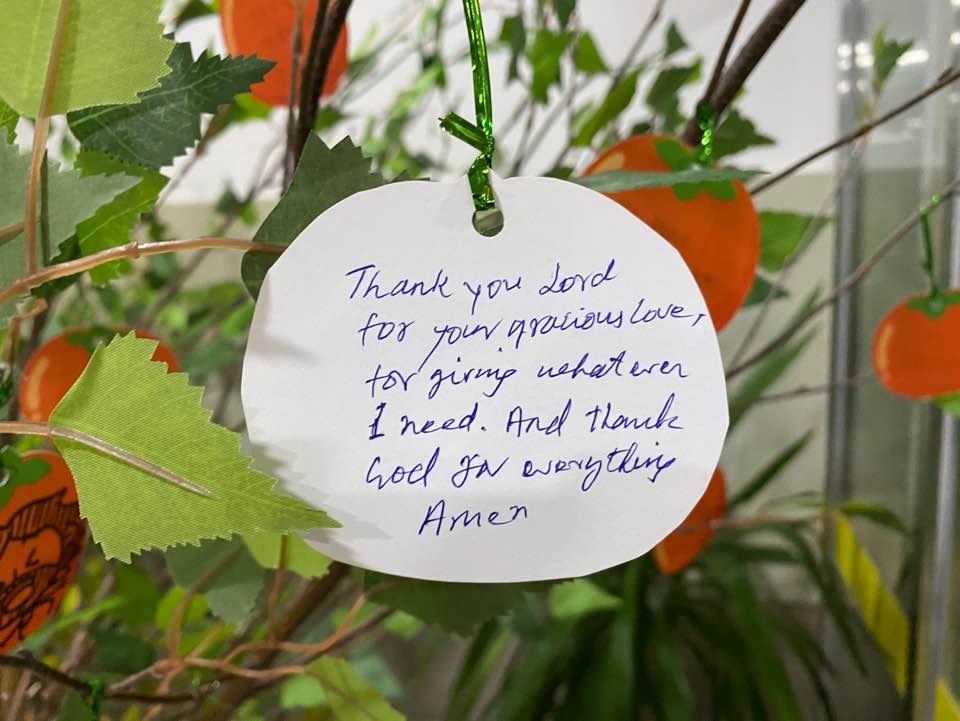 Thank you Lord
for your gracious love,
for giving whatever
I need. And thank
God for everything
Amen